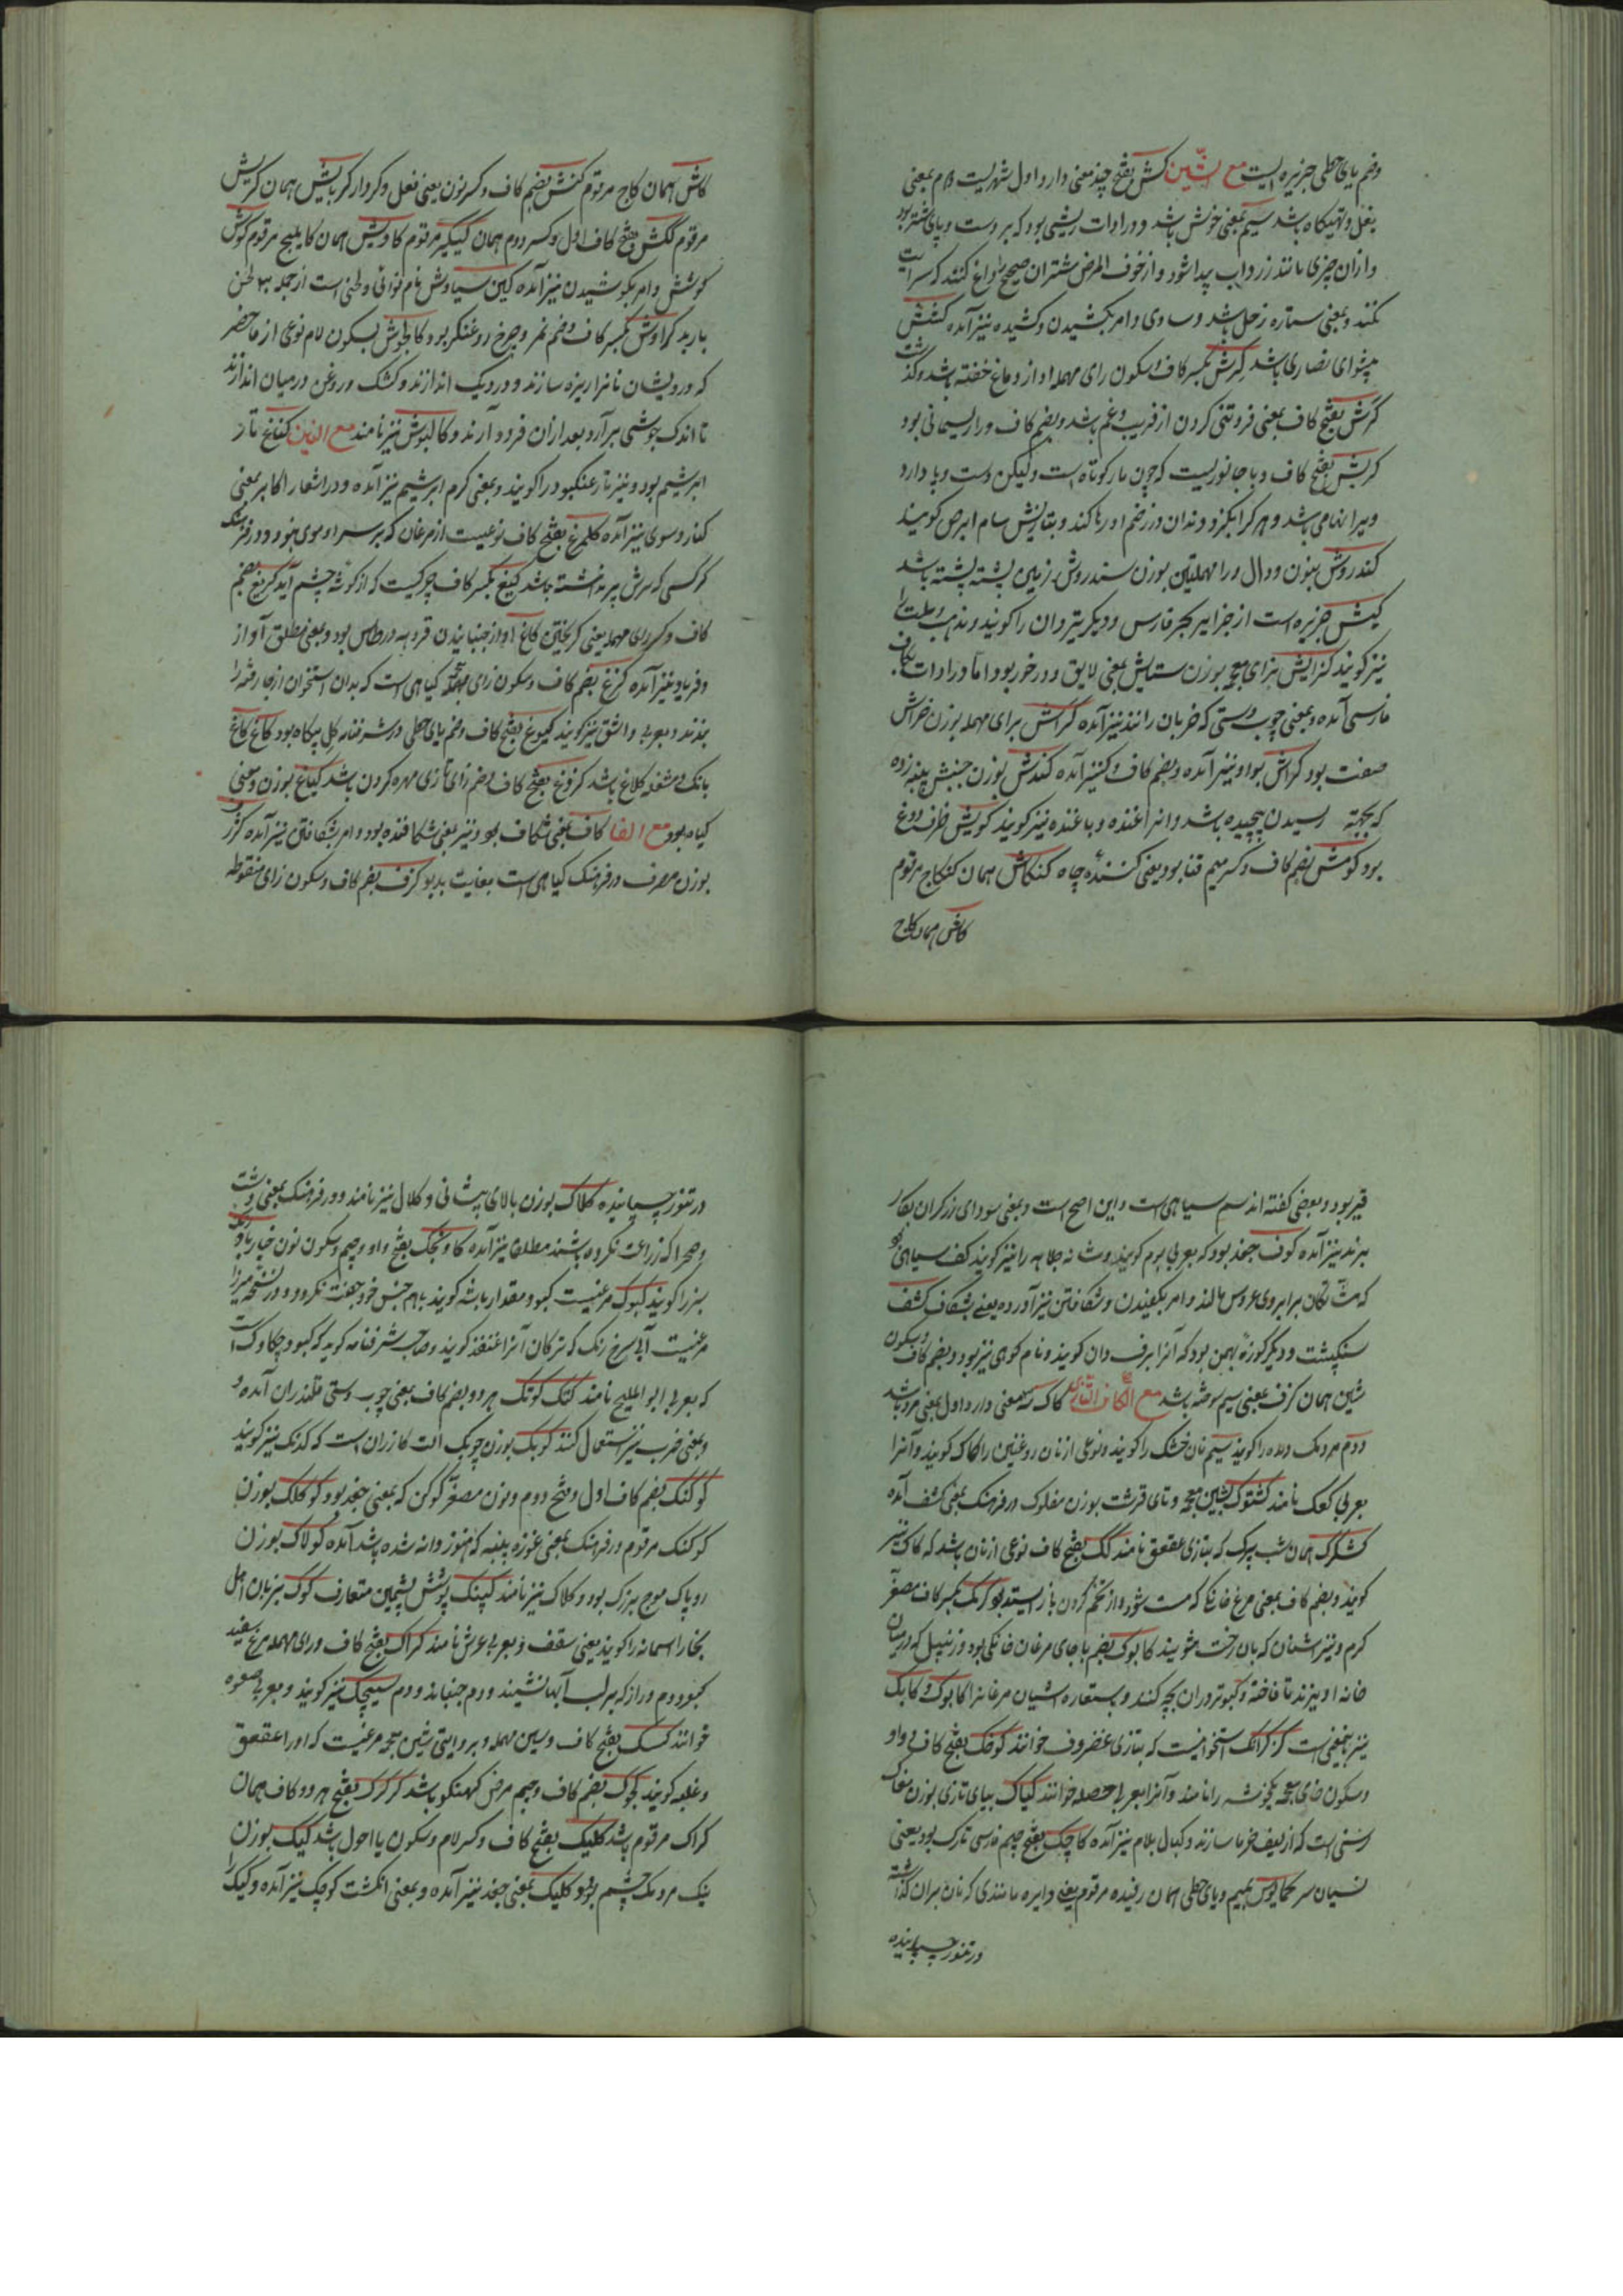 وضم یای حطی جزیره ایست مع الشین کش بفتح چند معنی دارد اول شهریست دوم بمعنی
بغل و تهیکاه باشد سیم بمعنی خوش باشد و در ادات ریشی بود که بر دست و پای شتر بود
و ازان چیزی مانند زرداب پیدا شود و از خوف المرض شتران صحیح را داغ کنند که سرایت
نکند و بمعنی ستاره زحل باشد و ساوی و امر بکشیدن و کشیده نیز آمده کشش
پیشوای نصاری باشد کرش بکسر کاف و سکون رای مهمله آواز دماغ خفته باشد
کرش بفتح کاف بمعنی فروتنی کردن از فریب و غم باشد و بضم کاف و را ریسمانی بود
کربش بفتح کاف و با جانوریست که چون مار کوتاه است ولیکن دست و پا دارد
و هر کرا بکزد دندان در زخم او رها کند و بتازیش سام ابرص کویند
کندروش بنون و دال و را مهملتین بوزن سندروش زمین پشته پشته باشد
کیش جزیره است از جزایر بحر فارس و دیگر تیردان را کویند و مذهب و ملت را
نیز کویند کزایش بزای معجمه بوزن ستایش بمعنی لایق و درخور بود اما در ادات بکاف
فارسی آمده و بمعنی چوب دستی که خربان رانند نیز آمده کراش برای مهمله بوزن خراش
صفت بود کراش بواو نیز آمده و بضم کاف نیز آمده کندش بوزن جنبش پنبه زده
که بجهة رسیدن پیچیده باشد و انرا غنده و باغنده نیز کویند کویش ظرف دوغ
بود کومش بضم کاف و کسر میم قنا بود یعنی کننده چاه کنکاش همان کنکاج مرقوم
کاش همان کاج
کاش همان کاج مرقوم کنش بضم کاف و کسر نون یعنی فعل و کردار کرباش همان کربش
مرقوم ککش بفتح کاف اول و کسر دوم همان ککیکیر مرقوم کاویش همان کابلیج مرقوم کوش
کوشش و امر بکوشیدن نیز آمده کین سیاوش نام نوائی و لحنی است از جمله سی لحن
باربد کراوش بکسر کاف و ضم نمر و چرخ روغنگر بود کالجوش بسکون لام نوعی از ماحضر
که درویشان نانرا ریزه سازند و در دیک اندازند و کشک و روغن درمیان اندازند
تا اندک جوشی برآرد بعد ازان فرود آرند و کالبوش نیز نامند مع الغین کناغ تار
ابریشم بود و نیز تار عنکبود را کویند و بمعنی کرم ابریشم نیز آمده و در اشعار اکابر بمعنی
کنار و سوی نیز آمده کلمرغ بفتح کاف نوعیست از مرغان که بر سر او موی نبود و در فرهنک
کرکسی که سرش پر نداشته باشد کیغ بکسر کاف چرکیست که از کوشه چشم آید کریغ بضم
کاف و کسر رای مهمله یعنی کریختن کاغ آواز جنبانیدن بود و بمعنی مطلق آواز
و فریاد نیز آمده کزغ بضم کاف و سکون زای معجمه کیاهی است که بدان استخوان از جا رفته را
بندند و بعربی و اشق نیز کویند کمیوغ بفتح کاف و ضم یای حطی در شرفنامه کل پیکاه بود کاغ کاغ
بانک و مشغله کلاغ باشد کزوغ بفتح کاف و ضم زای تازی مهره کردن باشد کیاغ بوزن و معنی
کیاه بود مع الفا کاف بمعنی شکاف بود و نیز بمعنی شکافنده بود و امر بشکافتن نیز آمده کزف
بوزن مصرف در فرهنک کیاهی است بغایت بدبو کزف بضم کاف و سکون زای منقوطه
قیر بود و بعضی کفته اند سم سیاهی است و این اصح است و بمعنی سودای زرکران بکار
برند نیز آمده کوف جغد بود که بعربی بوم کویند و شانه جلاهه را نیز کویند کف سیاهی بود
که مشاطکان بر ابروی عروس مالند و امر بکفیدن و شکافتن نیز آورده یعنی بشکاف کشف
سنکپشت و دیگر کوزه پهن بود که آنرا برف دان کویند و نام کوهی نیز بود و بضم کاف و سکون
شین همان کزف بمعنی سیم سوخته باشد مع الکاف التازی کاک سه معنی دارد اول بمعنی مرد باشد
دوم مردمک دیده را کویند سیم نان خشک را کویند و نوعی از نان روغنین را کاک کویند و آنرا
بعربی کعک نامند کشتوک بشین معجمه و تای قرشت بوزن مفلوک در فرهنک بمعنی کشف آمده
کشکرک همان شب پرک که بتازی عقعق نامند کک بفتح کاف نوعی از نان باشد که کاک نیز
کویند و بضم کاف بمعنی مرغ خانکی که مست شود و از تخم کردن باز ایستد بود کرمک بکسر کاف مصغر
کرم و نیز اشنان که بان رخت شویند کابوک بضم با جای مرغان خانکی بود و زنبیل که درمیان
خانه اویزند تا فاخته و کبوتر دران بچه کنند و بستعاره اشیان مرغانرا کابوک و کابک
نیز بهمین معنی است کرکرانک استخوانیست که بتازی غضروف خوانند کوخک بفتح کاف و واو
و سکون خای معجمه بکوشه را نامند و آنرا بعربی حصله خوانند کیاک بیای تازی بوزن مغاک
رسنی است که از لیف خرما سازند و کبال بلام نیز آمده کاچک بفتح جیم فارسی تارک بود یعنی
میان سر کماجوس بمیم و یای حطی همان رفیده مرقوم یعنی دایره مانندی که نان بران کذاشته
در تنور چسپانیده
در تنور چسپانیده کلاک بوزن بالای پیشانی و کلال نیز نامند و در فرهنک بمعنی دشت
و صحرا که زراعت نکرده باشند مطلقا نیز آمده کاونجک بفتح واو و جیم و سکون نون خیار بادرنک
سبز را کویند کبوک مرغیست کبود مقدار باشه کویند با هم جنس خود جفت نکردد و در نسخه میرزا
مرغیست آبی سرخ رنک که ترکان آنرا غنقز کویند و صاحب شرفنامه کوید که کبود چکاوک است
که بعربی ابو الملیح نامند کتک کوتک هر دو بضم کاف بمعنی چوب دستی قلندران آمده و
و بمعنی ضرب نیز استعمال کنند کوبک بوزن چوبک الت کازران است که کدنک نیز کویند
کوکنک بضم کاف اول و فتح دوم و نون مصغر کوکن که بمعنی جغد بود کوکلک بوزن
کوکنک مرقوم در فرهنک بمعنی غوزه پنبه که هنوز دانه نشده باشد آمده کولاک بوزن
روپاک موج بزرک بود و کلاک نیز نامند کپنک پوشش پشمین متعارف کوک بزبان اهل
بخارا سمانه را کویند یعنی سقف و بعربی عرش نامند کراک بفتح کاف و رای مهمله مرغ سفید
کبود دم دراز که بر لب آبها نشیند و دم جنباند و دم سیچک نیز کویند و بعربی صعوه
خوانند کسک بفتح کاف و سین مهمله و بروایتی شین معجمه مرغیست که او را عقعق
و غلبه کویند کجوک بضم کاف و جیم مرض کهنکو باشد کرکرک بفتح هر دو کاف همان
کراک مرقوم باشد کلیک بفتح کاف و کسر لام و سکون یا احول باشد کیک بوزن
نیک مردمک چشم بود و کلیک بمعنی جغد نیز آمده و بمعنی انکشت کوچک نیز آمده و کیک را